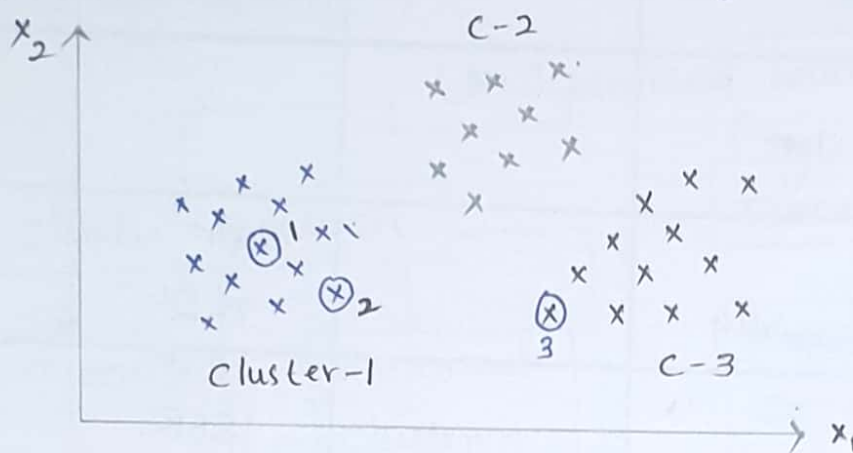 X2
C-2
1
2
3
Cluster-1
C-3
x1